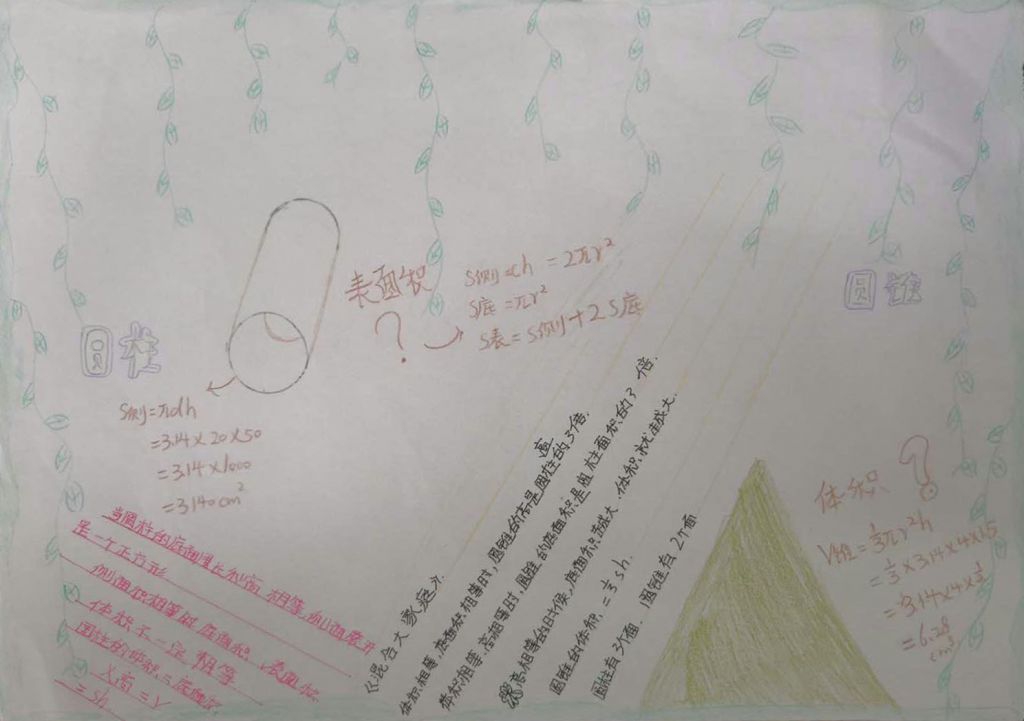 圆柱
表面积
?
S侧=ch =2πr²
S底=πr²
S表=S侧+2S底
圆锥
S侧=πdh
=3.14×20×50
=3.14×1000
=3140cm²
当圆柱的底面周长和高相等,侧面展开
是一个正方形
侧面积相等时底面积、表面积、
体积不一定相等
圆柱的体积=底面积
×高=V
=sh
《混合大家庭》
体积相等,底面积相等时,圆锥的高是圆柱高的3倍.
体积相等,高相等时,圆锥的底面积是圆柱面积的3倍.
高相等的时候,底面积越大,体积就越大.
圆锥的体积=⅓sh
圆柱有3个面. 圆锥有2个面
体积
?
V锥=⅓πr²h
=⅓×3.14×4×1.5
=3.14×4×½
=6.28
cm³